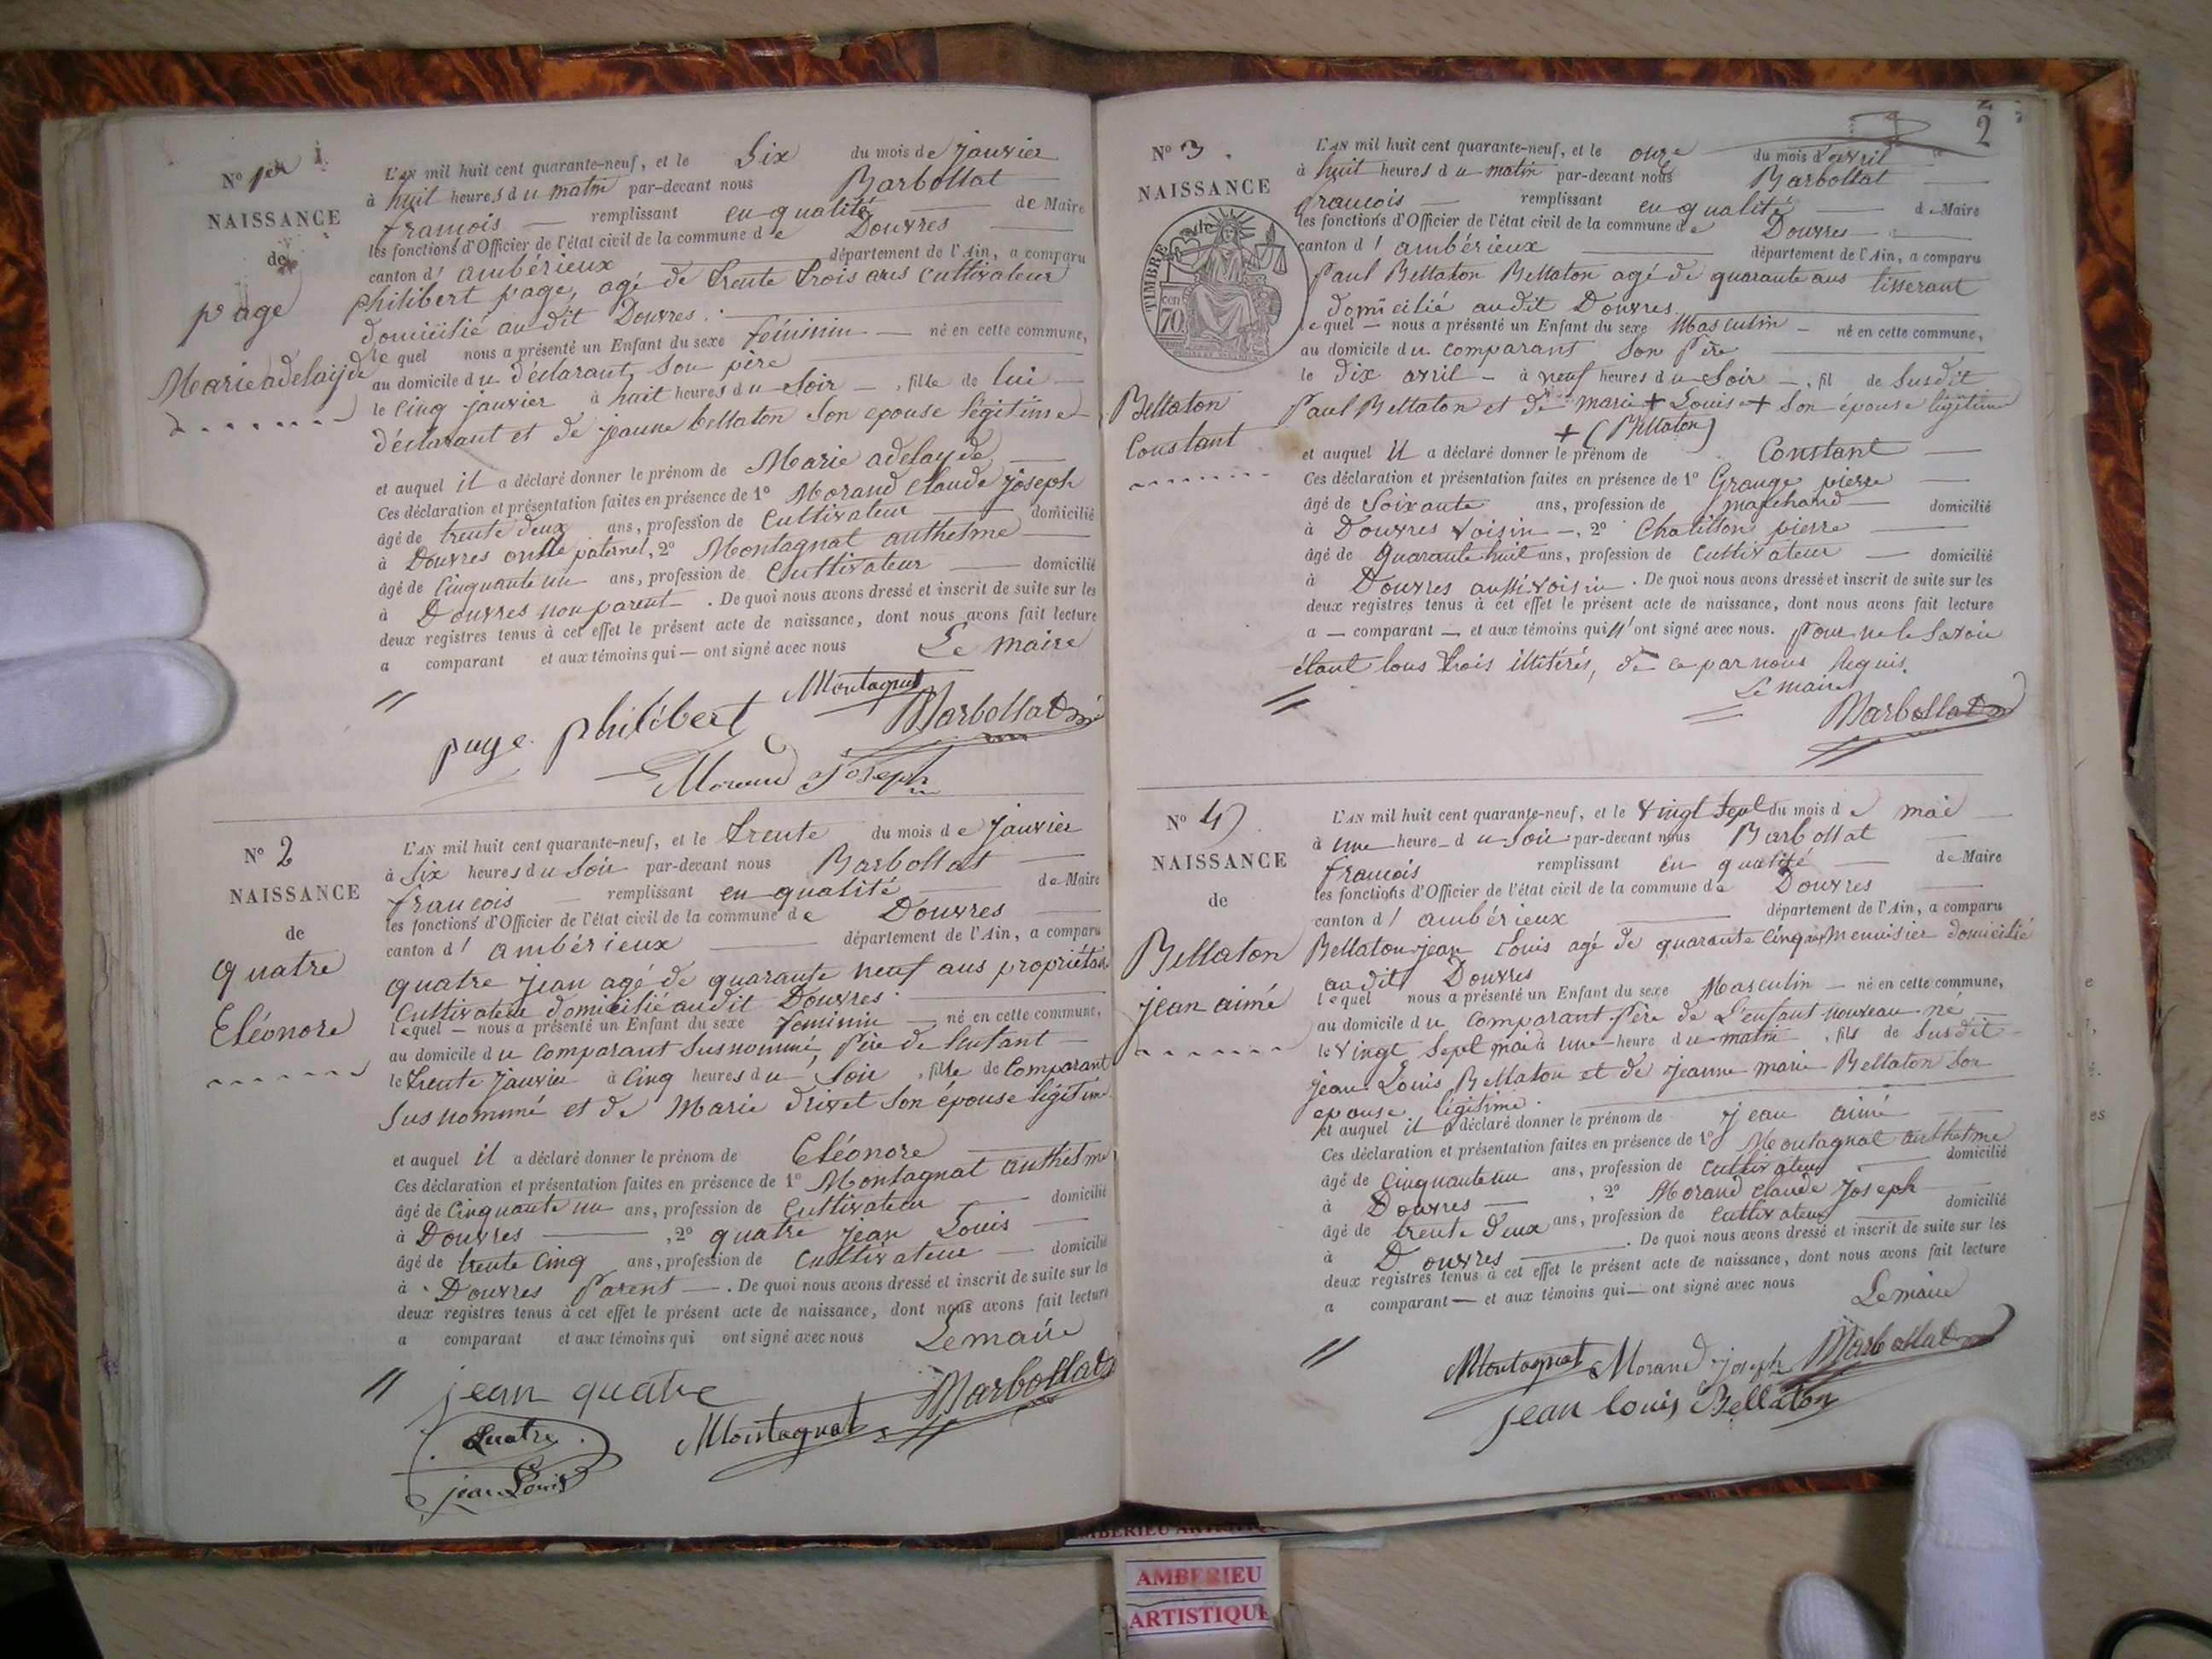 N° 1er 1
NAISSANCE
de
page
Marie adelayde
L'AN mil huit cent quarante-neuf, et le Six du mois de janvier
à huit heures du matin par-devant nous Barbollat
francois remplissant en qualité de Maire
les fonctions d'Officier de l'état civil de la commune de Douvres
canton d' ambérieux département de l'Ain, a comparu
philibert page, agé de trente trois ans Cultivateur
domicilié au dit Douvres.
lequel nous a présenté un Enfant du sexe féminin né en cette commune,
au domicile du déclarant, son père
le Cinq janvier à huit heures du Soir, fille de lui
déclarant et de jeanne bellaton Son epouse légitime
et auquel il a déclaré donner le prénom de Marie adelayde
Ces déclaration et présentation faites en présence de 1° Morand Claude joseph
âgé de trente deux ans, profession de Cultivateur domicilié
à Douvres oncle paternel, 2° Montagnat anthelme
âgé de Cinquante un ans, profession de Cultivateur domicilié
à Douvres non parent. De quoi nous avons dressé et inscrit de suite sur les
deux registres tenus à cet effet le présent acte de naissance, dont nous avons fait lecture
a comparant et aux témoins qui ont signé avec nous Le maire
Montagnat
page philibert Barbollat
Morand Joseph
N° 2
NAISSANCE
de
quatre
Eléonore
L'AN mil huit cent quarante-neuf, et le trente du mois de janvier
à Six heures du Soir par-devant nous Barbollat
francois remplissant en qualité de Maire
les fonctions d'Officier de l'état civil de la commune de Douvres
canton d' ambérieux département de l'Ain, a comparu
quatre jean agé de quarante neuf ans propriétaire
Cultivateur domicilié audit Douvres.
lequel nous a présenté un Enfant du sexe feminin né en cette commune,
au domicile du comparant Susnommé, père de l'enfant
le trente janvier à Cinq heures du Soir, fille de Comparant
Sus nommé et de Marie drivet Son épouse légitime
et auquel il a déclaré donner le prénom de Eléonore
Ces déclaration et présentation faites en présence de 1° Montagnat anthelme
âgé de Cinquante un ans, profession de Cultivateur domicilié
à Douvres, 2° quatre jean Louis
âgé de trente Cinq ans, profession de Cultivateur domicilié
à Douvres Parent. De quoi nous avons dressé et inscrit de suite sur les
deux registres tenus à cet effet le présent acte de naissance, dont nous avons fait lecture
a comparant et aux témoins qui ont signé avec nous Le maire
jean quatre Barbollat
Quatre Montagnat
jean Louis
2
N° 3.
NAISSANCE
TIMBRE
70 cen
Bellaton
Constant
L'AN mil huit cent quarante-neuf, et le onze du mois d'avril
à huit heures du matin par-devant nous Barbollat
francois remplissant en qualité de Maire
les fonctions d'Officier de l'état civil de la commune de Douvres
canton d' ambérieux département de l'Ain, a comparu
Paul Bellaton Bellaton agé de quarante ans tisserant
domicilié audit Douvres
lequel nous a présenté un Enfant du sexe Masculin né en cette commune,
au domicile du comparant Son Père
le dix avril à neuf heures du Soir, fil de Susdit
Paul Bellaton et de marie + Louise + Son épouse légitime
+ (Bellaton)
et auquel il a déclaré donner le prénom de Constant
Ces déclaration et présentation faites en présence de 1° Grange pierre
âgé de Soixante ans, profession de marchand domicilié
à Douvres voisin, 2° Chatillon pierre
âgé de Quarante huit ans, profession de Cultivateur domicilié
à Douvres aussi voisin. De quoi nous avons dressé et inscrit de suite sur les
deux registres tenus à cet effet le présent acte de naissance, dont nous avons fait lecture
a comparant et aux témoins qui n'ont signé avec nous. Pour ne le Savoir
étant tous trois illitérés, de ce par nous Requis.
Le maire
Barbollat
N° 4
NAISSANCE
de
Bellaton
jean aimé
L'AN mil huit cent quarante-neuf, et le vingt Sept du mois de mai
à une heure du Soir par-devant nous Barbollat
francois remplissant en qualité de Maire
les fonctions d'Officier de l'état civil de la commune de Douvres
canton d' ambérieux département de l'Ain, a comparu
Bellaton jean Louis agé de quarante Cinq ans menuisier domicilié
audit Douvres
lequel nous a présenté un Enfant du sexe Masculin né en cette commune,
au domicile du comparant Père de L'enfant nouveau né
le vingt Sept mai à une heure du matin, fils de Susdit
jean Louis Bellaton et de jeanne marie Bellaton Son
epouse légitime.
et auquel il a déclaré donner le prénom de jean aimé
Ces déclaration et présentation faites en présence de 1° Montagnat anthelme
âgé de Cinquante un ans, profession de Cultivateur domicilié
à Douvres, 2° Morand claude Joseph
âgé de trente deux ans, profession de Cultivateur domicilié
à Douvres. De quoi nous avons dressé et inscrit de suite sur les
deux registres tenus à cet effet le présent acte de naissance, dont nous avons fait lecture
a comparant et aux témoins qui ont signé avec nous Le maire
Montagnat Morand joseph Barbollat
jean louis Bellaton
AMBERIEU ARTISTIQUE
AMBERIEU
ARTISTIQUE